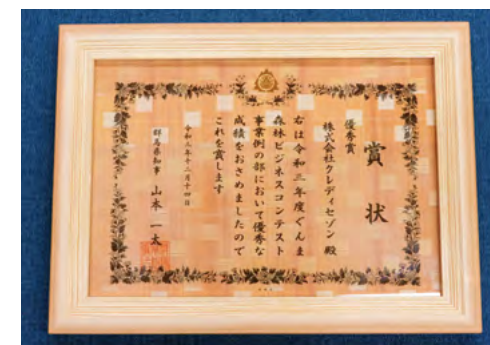 賞状
優秀賞
株式会社クレディセゾン殿
右は令和三年度ぐんま
森林ビジネスコンテスト
事業例の部において優秀な
成績をおさめましたので
これを賞します
令和三年十二月十四日
群馬県知事 山本一太